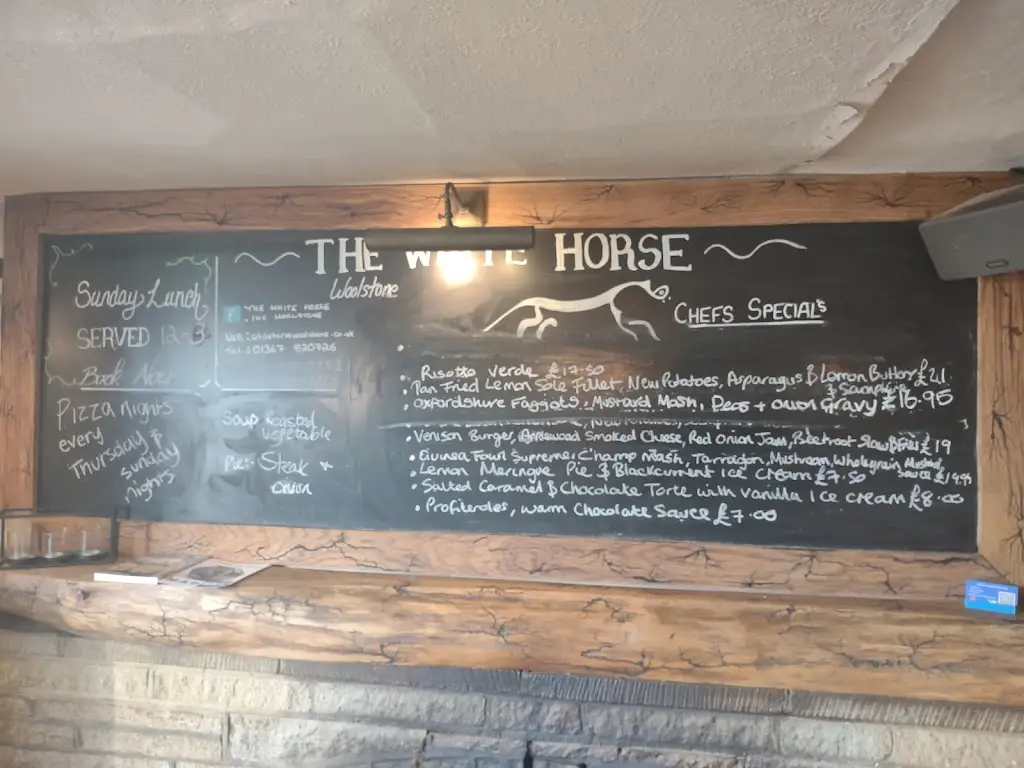 THE WHITE HORSE
Woolstone
Sunday Lunch
SERVED 12-3
Book Now
Pizza nights
every
Thursday &
Sunday
nights
THE WHITE HORSE
WOOLSTONE
Tel: 01367 820726
Soup roasted
Vegetable
Pie: Steak &
Onion
CHEFS SPECIAL's
• Risotto verde £17.50
• Pan Fried Lemon Sole Fillet, New Potatoes, Asparagus & Lemon Butter £21
& Samphire
• Oxfordshire Faggots, Mustard Mash, Peas + onion Gravy £16.95
• Venison Burger, Applewood Smoked Cheese, Red Onion Jam, Beetroot Slaw & Fries £19
• Guinea Fowl Supreme, Champ Mash, Tarragon, Mushroom, Wholegrain Mustard
Sauce £19.95
• Lemon Meringue Pie & Blackcurrent Ice Cream £7.50
• Salted Caramel & Chocolate Torte with Vanilla Ice cream £8.00
• Profiteroles, warm Chocolate Sauce £7.00